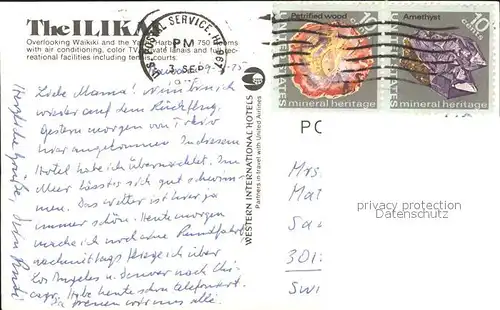 The ILIKAI
Overlooking Waikiki and the Yacht Harbor. 750 rooms
with air conditioning, color TV, private lanais and full
recreational facilities including tennis courts.
U.S. POSTAL SERVICE, HI. 967
PM
3 SEP
Petrified wood
10 cents
UNITED STATES
mineral heritage
Amethyst
10 cents
UNITED STATES
mineral heritage
Liebe Mama! Nun bin ich
wieder auf dem Rückflug,
gestern morgen von Tokio
hier angekommen. In diesem
Hotel habe ich übernachtet. Im
Meer lässt es sich gut schwim-
men. Das Wetter ist hier ja
immer schön. Heute morgen
mache ich noch eine Rundfahrt,
nachmittags fliege ich über
Los Angeles u. Denver nach Chi-
cago. Habe heute schon telefoniert.
Da freuen wir uns alle.
Herzliche Grüße, dein
WESTERN INTERNATIONAL HOTELS
Partners in travel with United Airlines
PO
Mrs.
301
privacy protection
Datenschutz